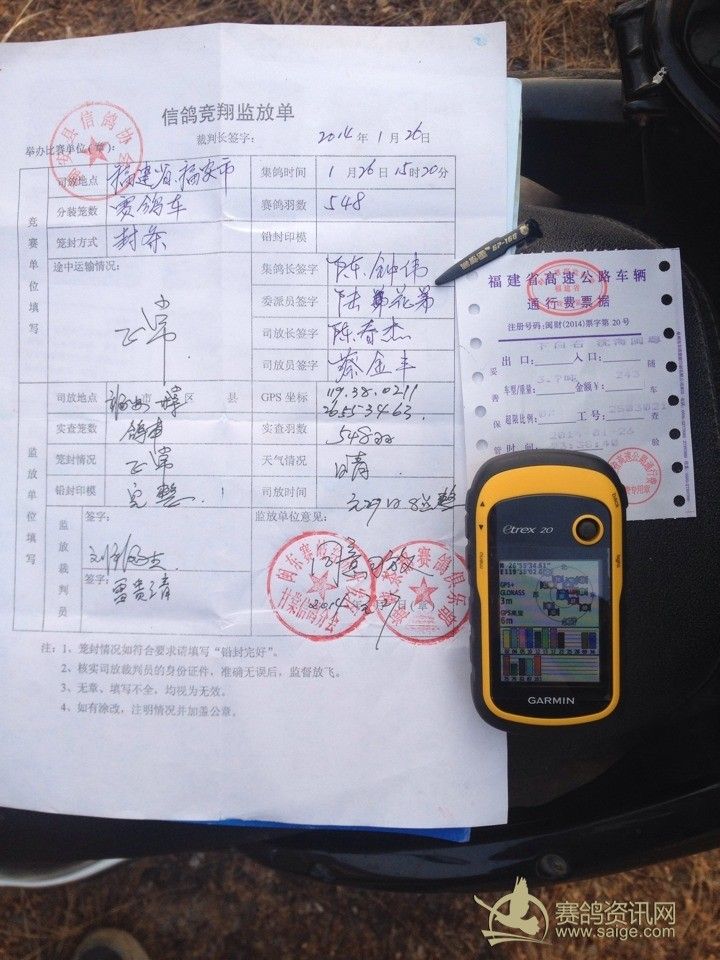 信鸽竞翔监放单
举办比赛单位(章):
裁判长签字:
2014年1月26日
竞赛单位填写
司放地点 福建省福安市
集鸽时间 1月26日15时20分
分装笼数 赛鸽车
赛鸽羽数 548
笼封方式 封条
铅封印模
途中运输情况:
正常
集鸽长签字 陈钟伟
委派员签字
司放长签字 陈春杰
司放员签字 蔡金丰
监放单位填写
司放地点 市 区 县
GPS 坐标 119.38.0211
26.55.3463.
实查笼数 鸽车
实查羽数 548羽
笼封情况 正常
天气情况 晴
铅封印模 完整
司放时间
监放裁判员
签字:
签字:
雷贵清
监放单位意见:
同意司放
(章)
注:1、笼封情况如符合要求请填写“铅封完好”。
2、核实司放裁判员的身份证件,准确无误后,监督放飞。
3、无章、填写不全,均视为无效。
4、如有涂改,注明情况并加盖公章。
福建省高速公路车辆
通行费票据
注册号码:闽财(2014)票字第 20 号
出口: 入口:
车型/重量: 金额¥: 243
超限比例: 工号:
时间: 2014-01-26
妥善保管
随车
验
etrex 20
GPS+
GLONASS
3m
6m
GARMIN
赛鸽资讯网
www.saige.com